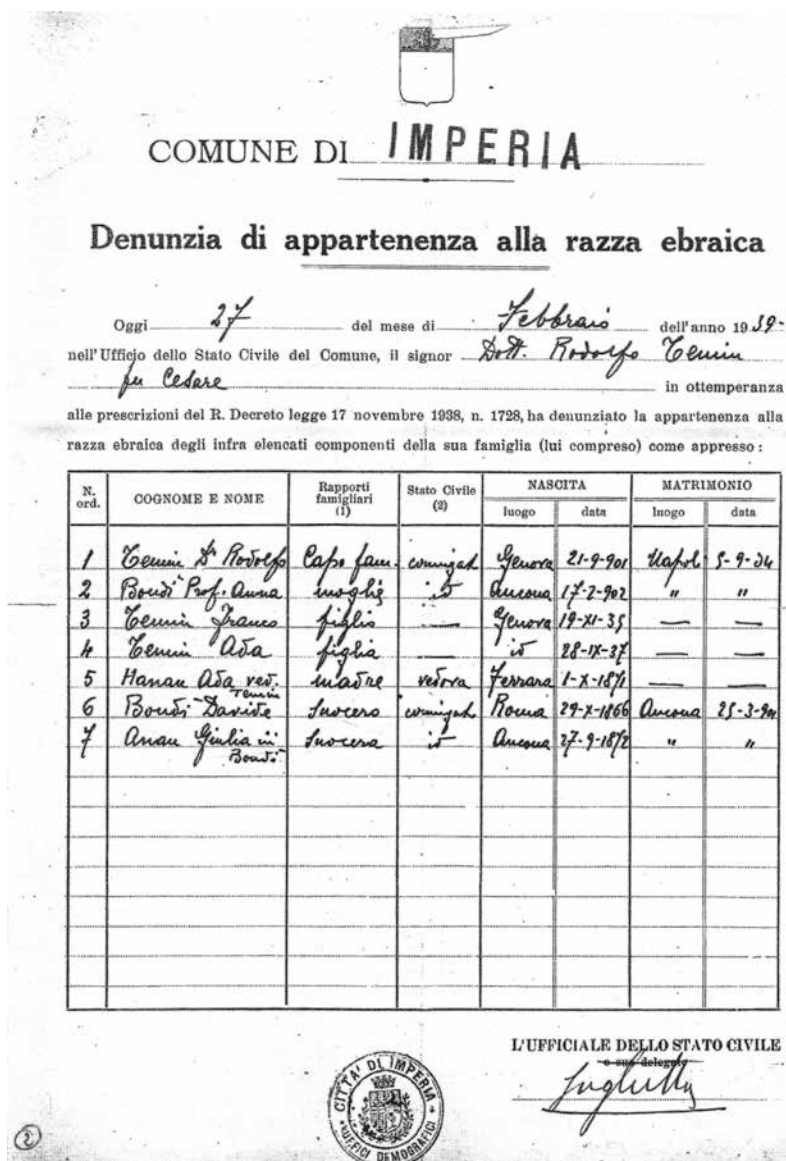 COMUNE DI IMPERIA
Denunzia di appartenenza alla razza ebraica
Oggi 27 del mese di Febbraio dell'anno 1939-
nell'Ufficio dello Stato Civile del Comune, il signor Dott. Rodolfo Temin
fu Cesare in ottemperanza
alle prescrizioni del R. Decreto legge 17 novembre 1938, n. 1728, ha denunziato la appartenenza alla
razza ebraica degli infra elencati componenti della sua famiglia (lui compreso) come appresso:
N. ord. COGNOME E NOME Rapporti famigliari (1) Stato Civile (2) NASCITA MATRIMONIO
luogo data luogo data
1 Temin Dr Rodolfo Capo fam. coniugat Genova 21-9-901 Napoli 5-9-34
2 Bondì Prof. Anna moglie id Ancona 17-2-902 " "
3 Temin Franco figlio — Genova 19-XI-35 — —
4 Temin Ada figlia — id 28-IX-37 — —
5 Hanau Ada ved. Temin madre vedova Ferrara 1-X-1871 — —
6 Bondì Davide Suocero coniugat Roma 29-X-1866 Ancona 25-3-901
7 Anau Giulia in Bondì Suocera id Ancona 27-9-1872 " "
L'UFFICIALE DELLO STATO CIVILE
o suo delegato
CITTA' DI IMPERIA
UFFICI DEMOGRAFICI
2